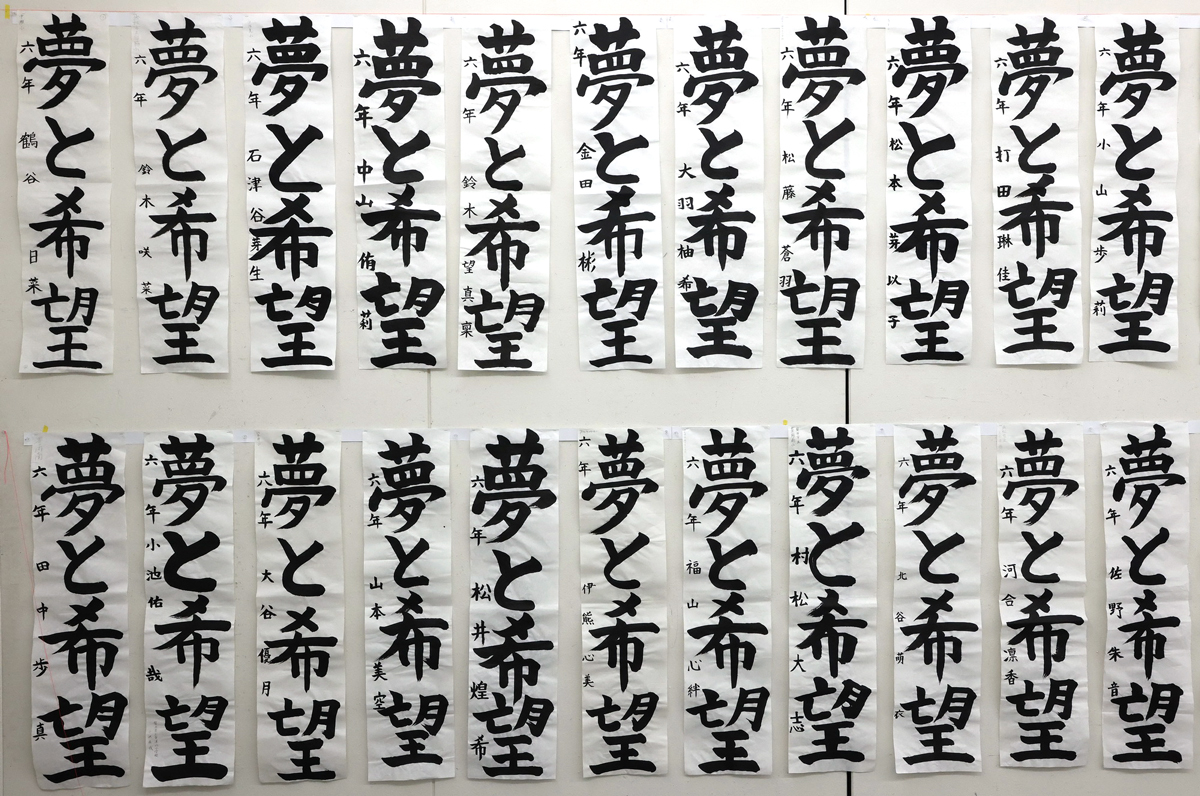 夢と希望
六年 鶴谷日菜
夢と希望
六年 鈴木咲菜
夢と希望
六年 石津谷芽生
夢と希望
六年 中山侑莉
夢と希望
六年 鈴木望真稟
夢と希望
六年 金田彬
夢と希望
六年 大羽柚希
夢と希望
六年 松藤蒼羽
夢と希望
六年 松本芽以子
夢と希望
六年 打田琳佳
夢と希望
六年 小山歩莉
夢と希望
六年 田中歩真
夢と希望
六年 小池佑哉
夢と希望
六年 大谷優月
夢と希望
六年 山本美空
夢と希望
六年 松井煌希
夢と希望
六年 伊熊心美
夢と希望
六年 福山心絆
夢と希望
六年 村松大志
夢と希望
六年 北谷萌衣
夢と希望
六年 河合凛香
夢と希望
六年 佐野朱音